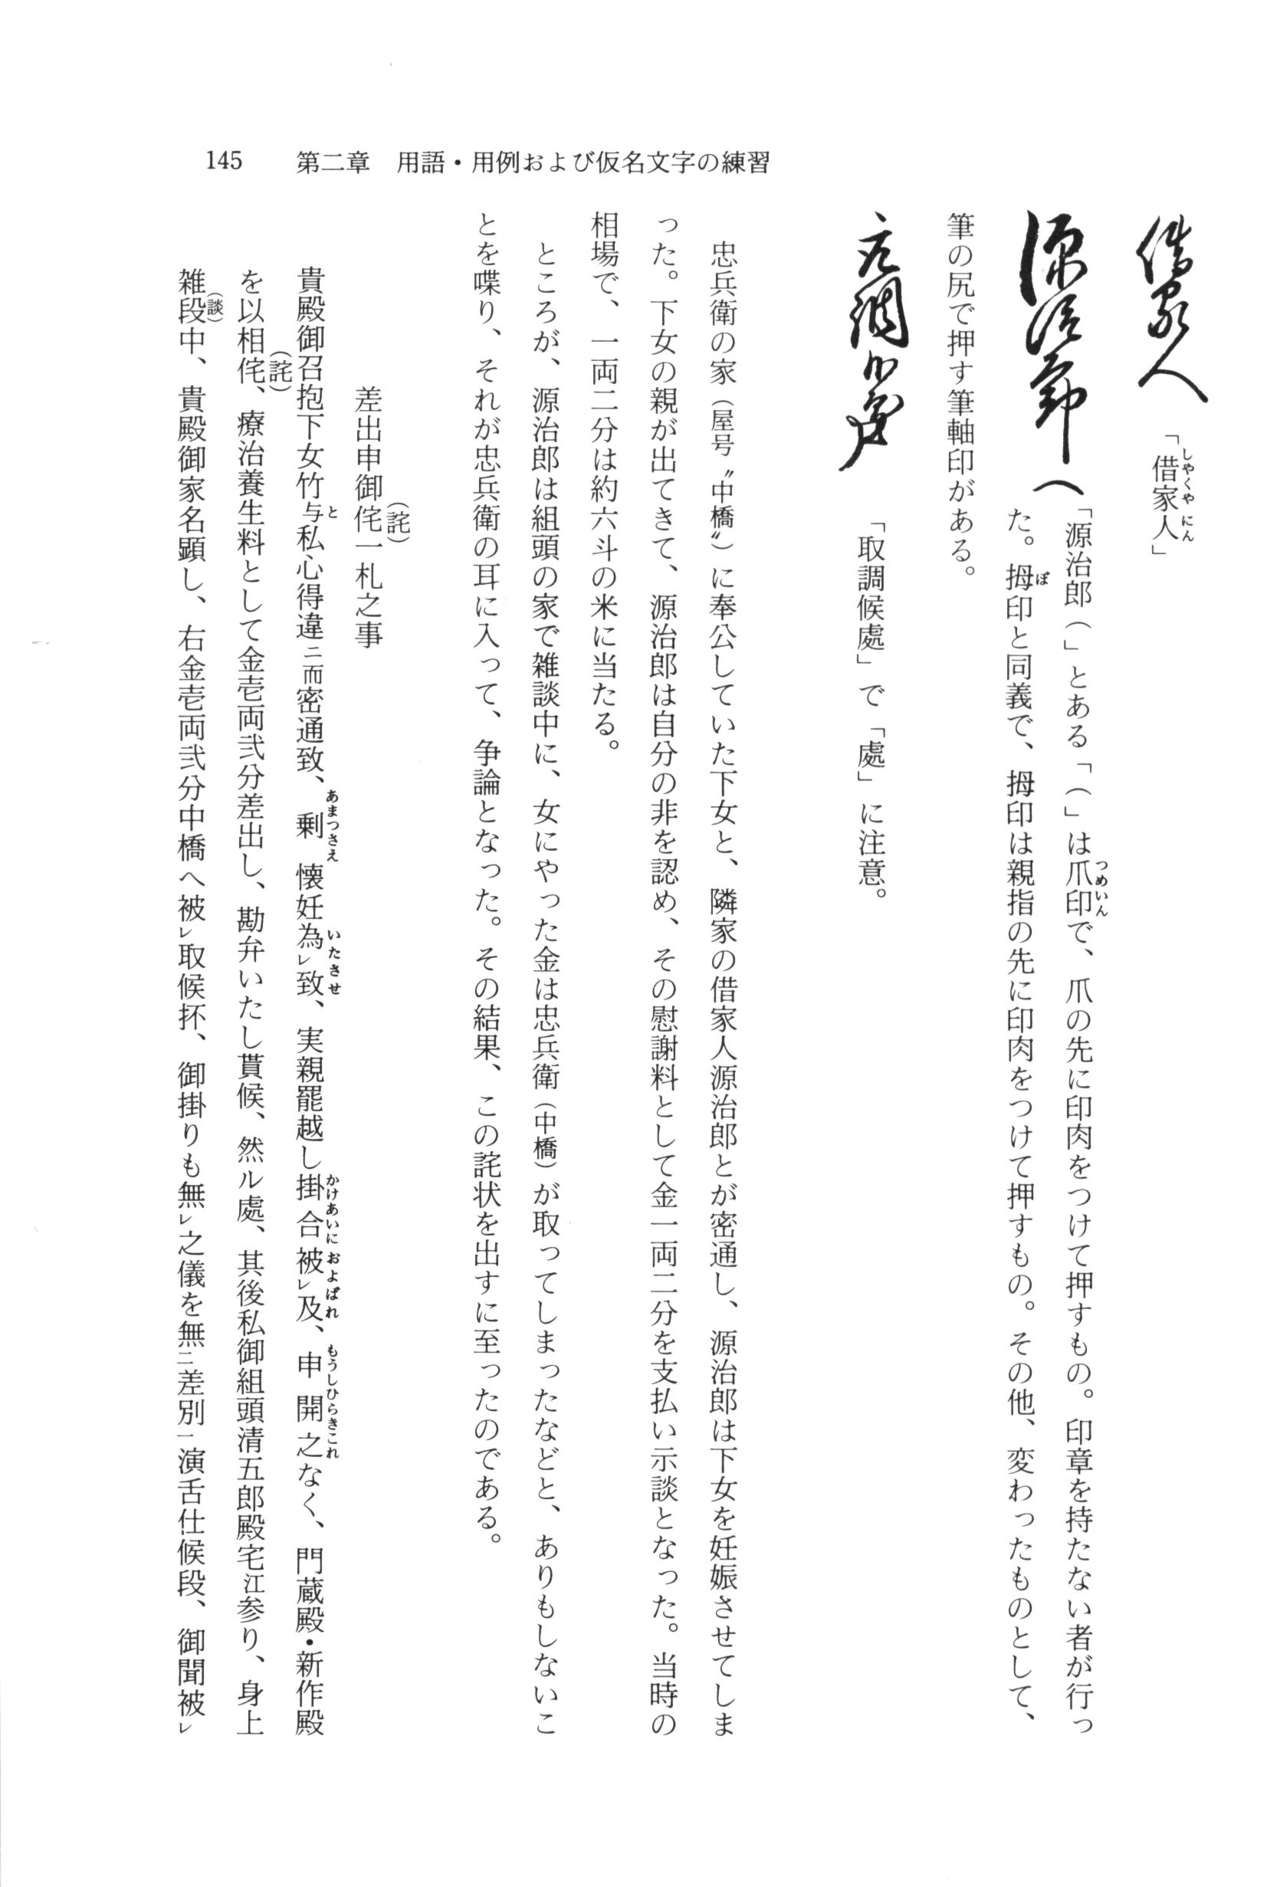 145　第二章　用語・用例および仮名文字の練習
借家人
「借家人」
源治郎（
「源治郎（」とある「（」は爪印で、爪の先に印肉をつけて押すもの。印章を持たない者が行っ
た。拇印と同義で、拇印は親指の先に印肉をつけて押すもの。その他、変わったものとして、
筆の尻で押す筆軸印がある。
取調候處
「取調候處」で「處」に注意。
忠兵衛の家（屋号〝中橋〟）に奉公していた下女と、隣家の借家人源治郎とが密通し、源治郎は下女を妊娠させてしま
った。下女の親が出てきて、源治郎は自分の非を認め、その慰謝料として金一両二分を支払い示談となった。当時の
相場で、一両二分は約六斗の米に当たる。
ところが、源治郎は組頭の家で雑談中に、女にやった金は忠兵衛（中橋）が取ってしまったなどと、ありもしないこ
とを喋り、それが忠兵衛の耳に入って、争論となった。その結果、この詫状を出すに至ったのである。
差出申御侘（詫）一札之事
貴殿御召抱下女竹与私心得違ニ而密通致、剰懐妊為レ致、実親罷越し掛合被レ及、申開之なく、門蔵殿・新作殿
を以相侘（詫）、療治養生料として金壱両弐分差出し、勘弁いたし貰候、然ル處、其後私御組頭清五郎殿宅江参り、身上
雑段（談）中、貴殿御家名顕し、右金壱両弐分中橋へ被レ取候抔、御掛りも無レ之儀を無二差別一演舌仕候段、御聞被レ